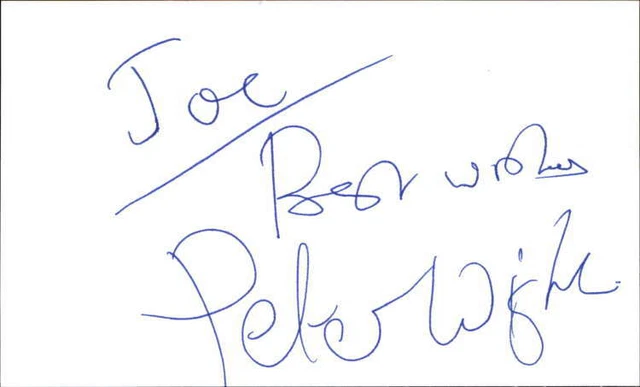 Joe
Best wishes
Peter Wight